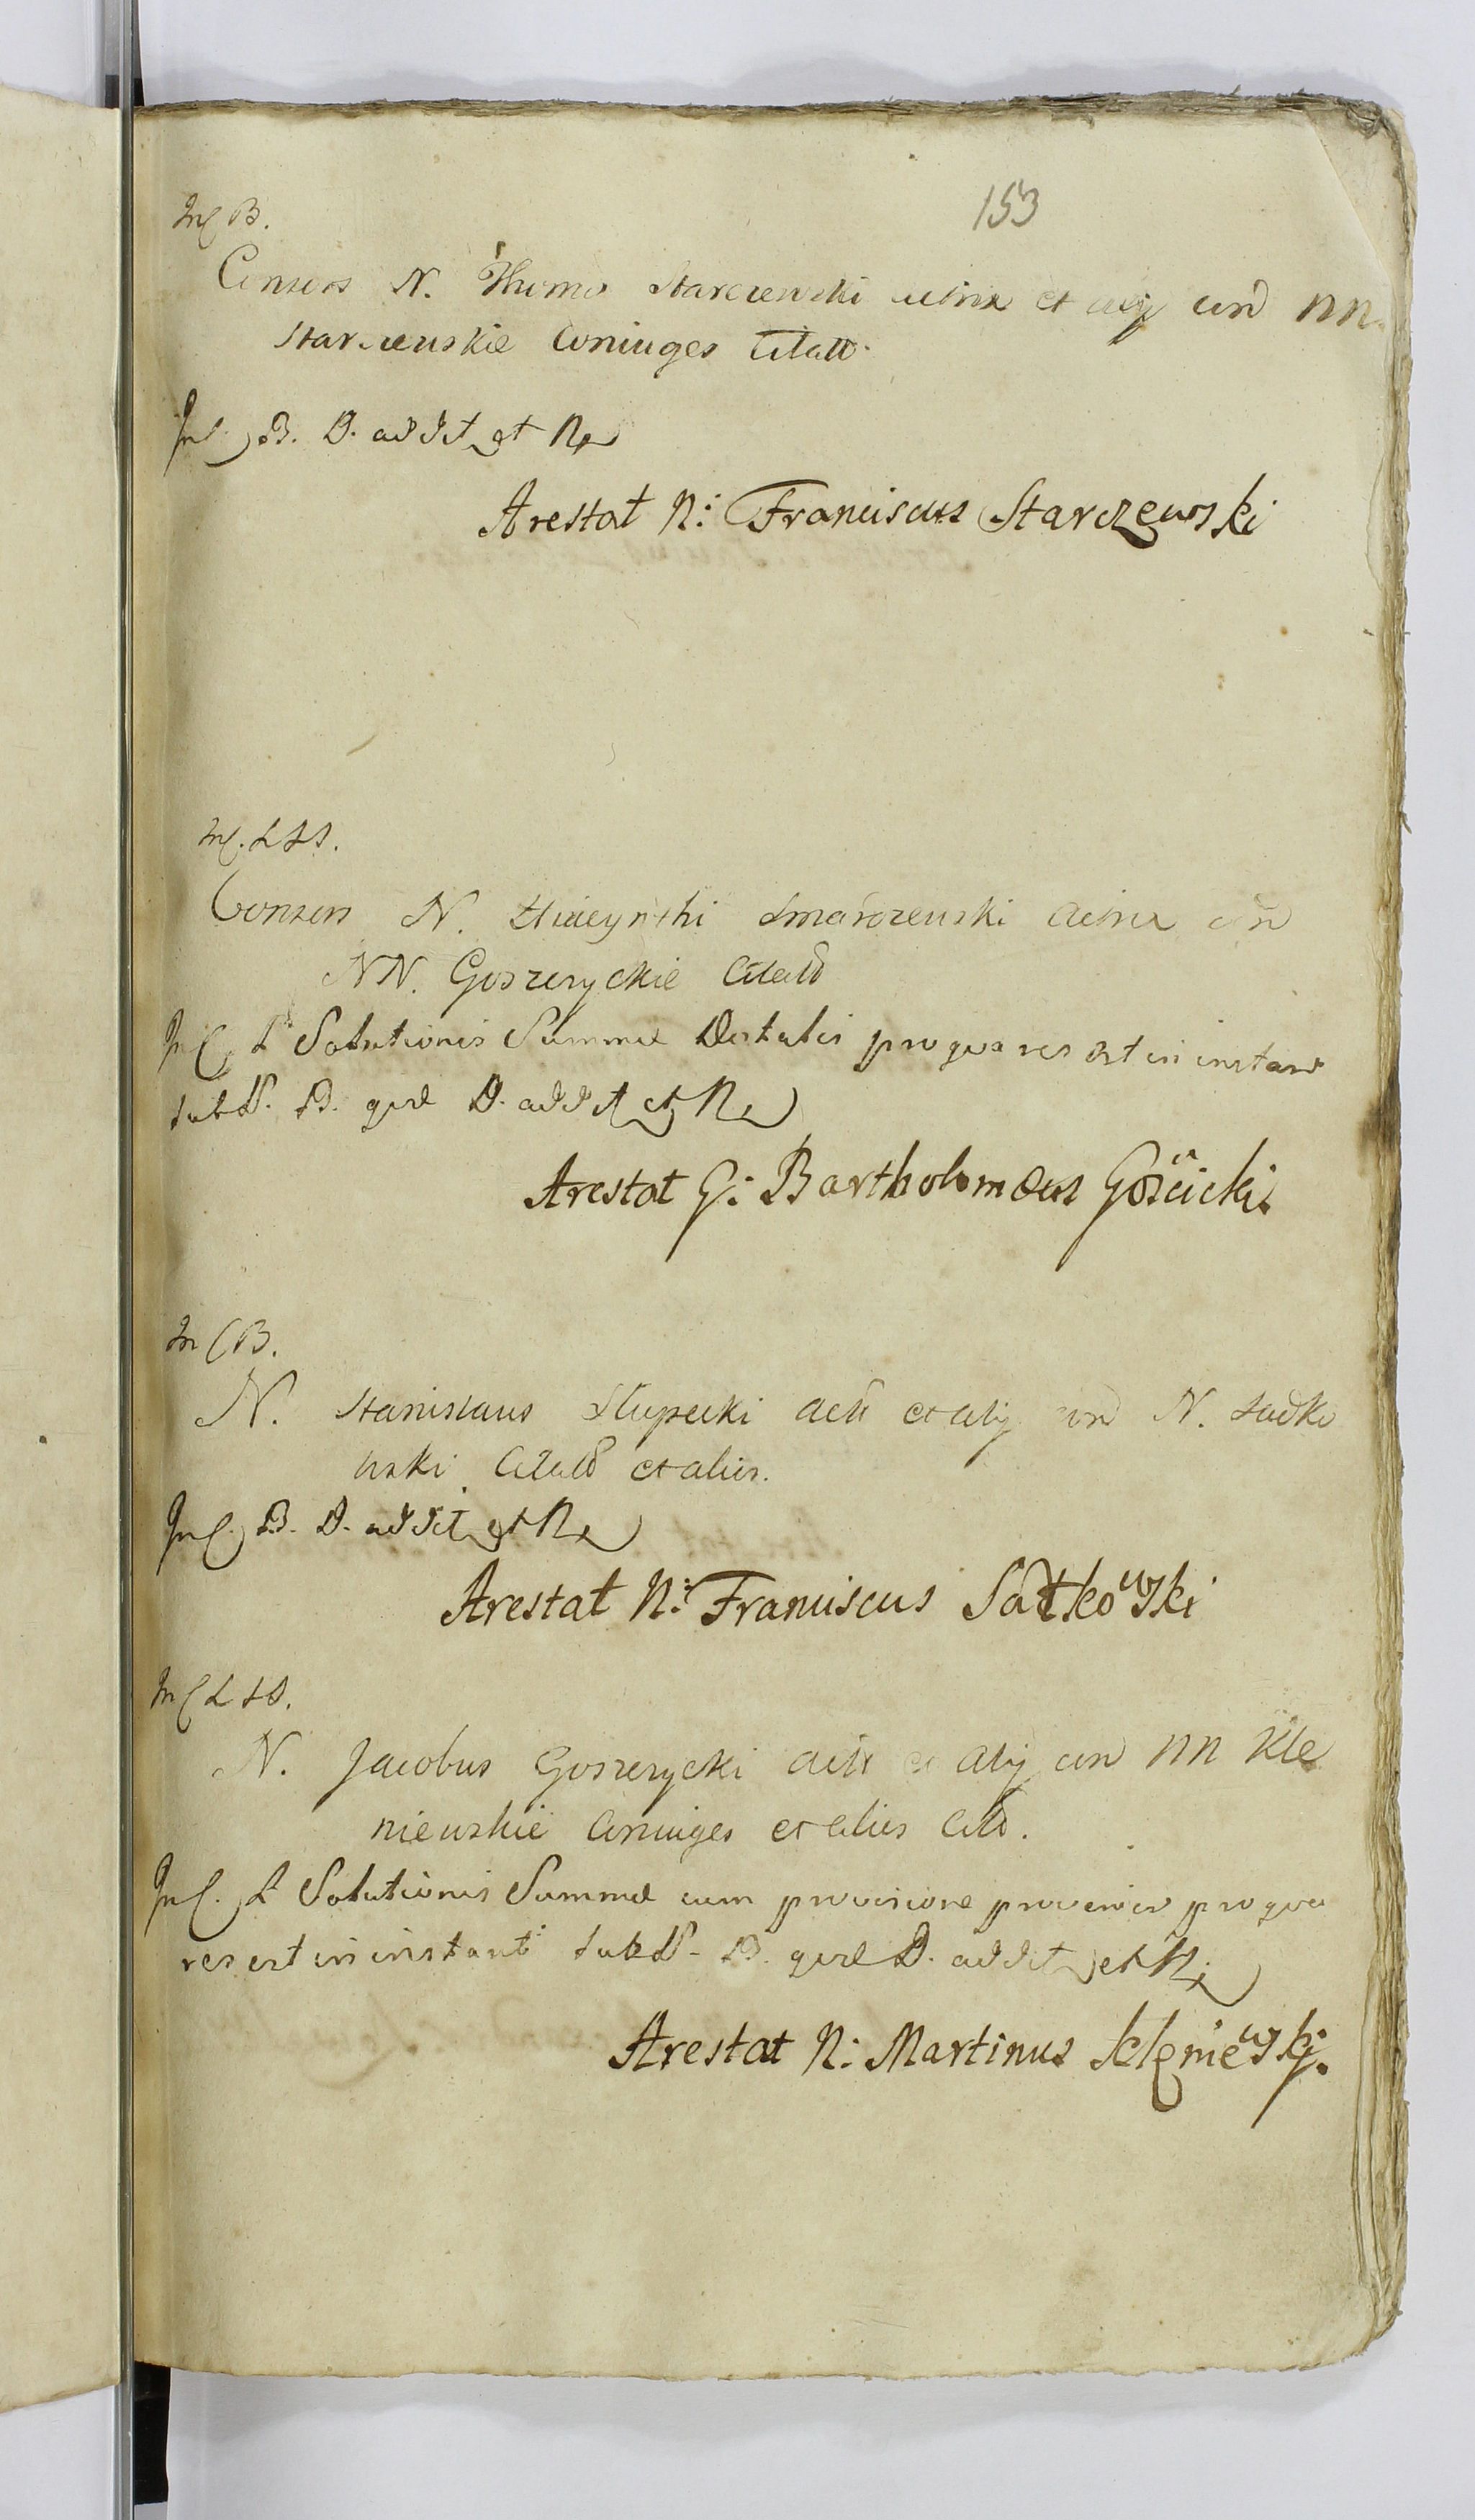 153
In C B.
Consors N. Thoma Starczewski actrix et alij cum NN.
Starczewskie Coniuges Citatt.
In C. B. D. addit et N
Arestat N: Franciscus Starczewski
In C. L S S.
Consors N. Hiacynthi Smarzewski actrix cum
NN. Goszczyckie Citatt
In C. L Solutionis Summæ Dotalis pro qua res est in instan
sub P. B. quæ D. addit et N
Arestat G: Bartholomæus Gościcki.
In C B.
N. Stanislaus Słupecki actt et alij cum N. Sadko
wski Citatt et alios.
In C. B. D. addit et N
Arestat N: Franciscus Satkowski
In C L S S.
N. Jacobus Goszczycki actt et alij cum NN Kle
niewskie Coniuges et alios Citt.
In C. L Solutionis Summæ cum provisione pro qua
res est in instanti sub P. B. quæ D. addit et N
Arestat N: Martinus Kleniewski.